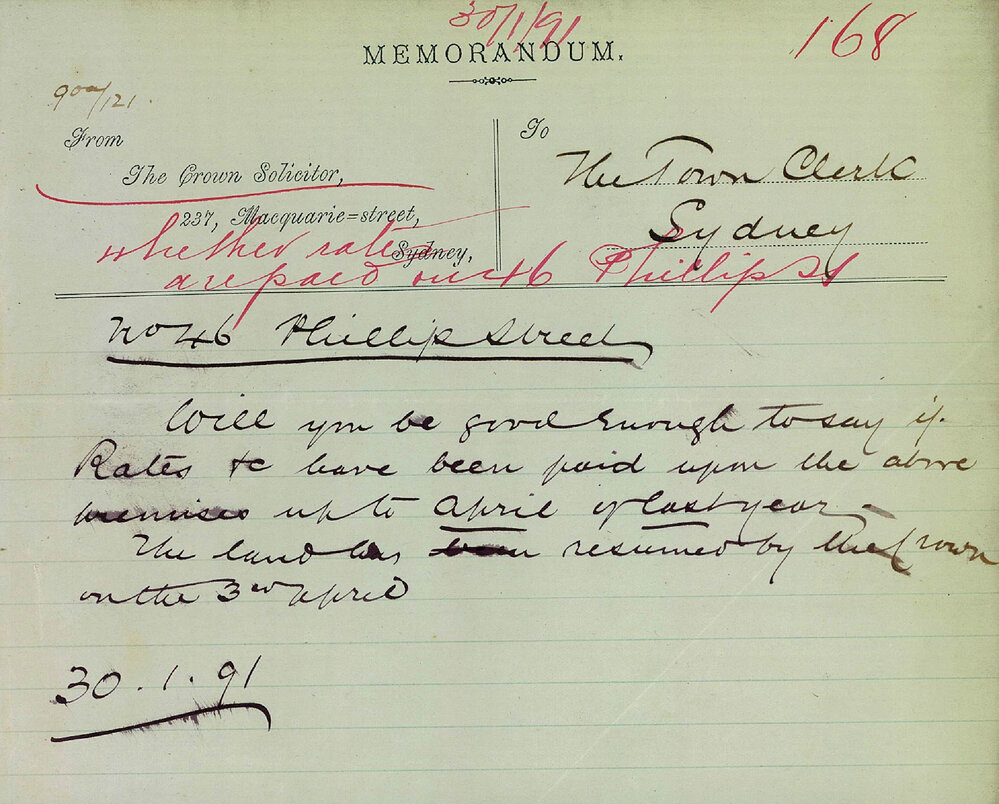 30/1/91
168
MEMORANDUM.
90a/121.
From
The Crown Solicitor,
237, Macquarie=street,
Sydney,
To
The Town Clerk
Sydney
whether rates
are paid on 46 Phillip St
No 46 Phillip Street
Will you be good enough to say if
Rates &c have been paid upon the above
premises up to April of last year.
The land was been resumed by the Crown
on the 3rd April
30.1.91